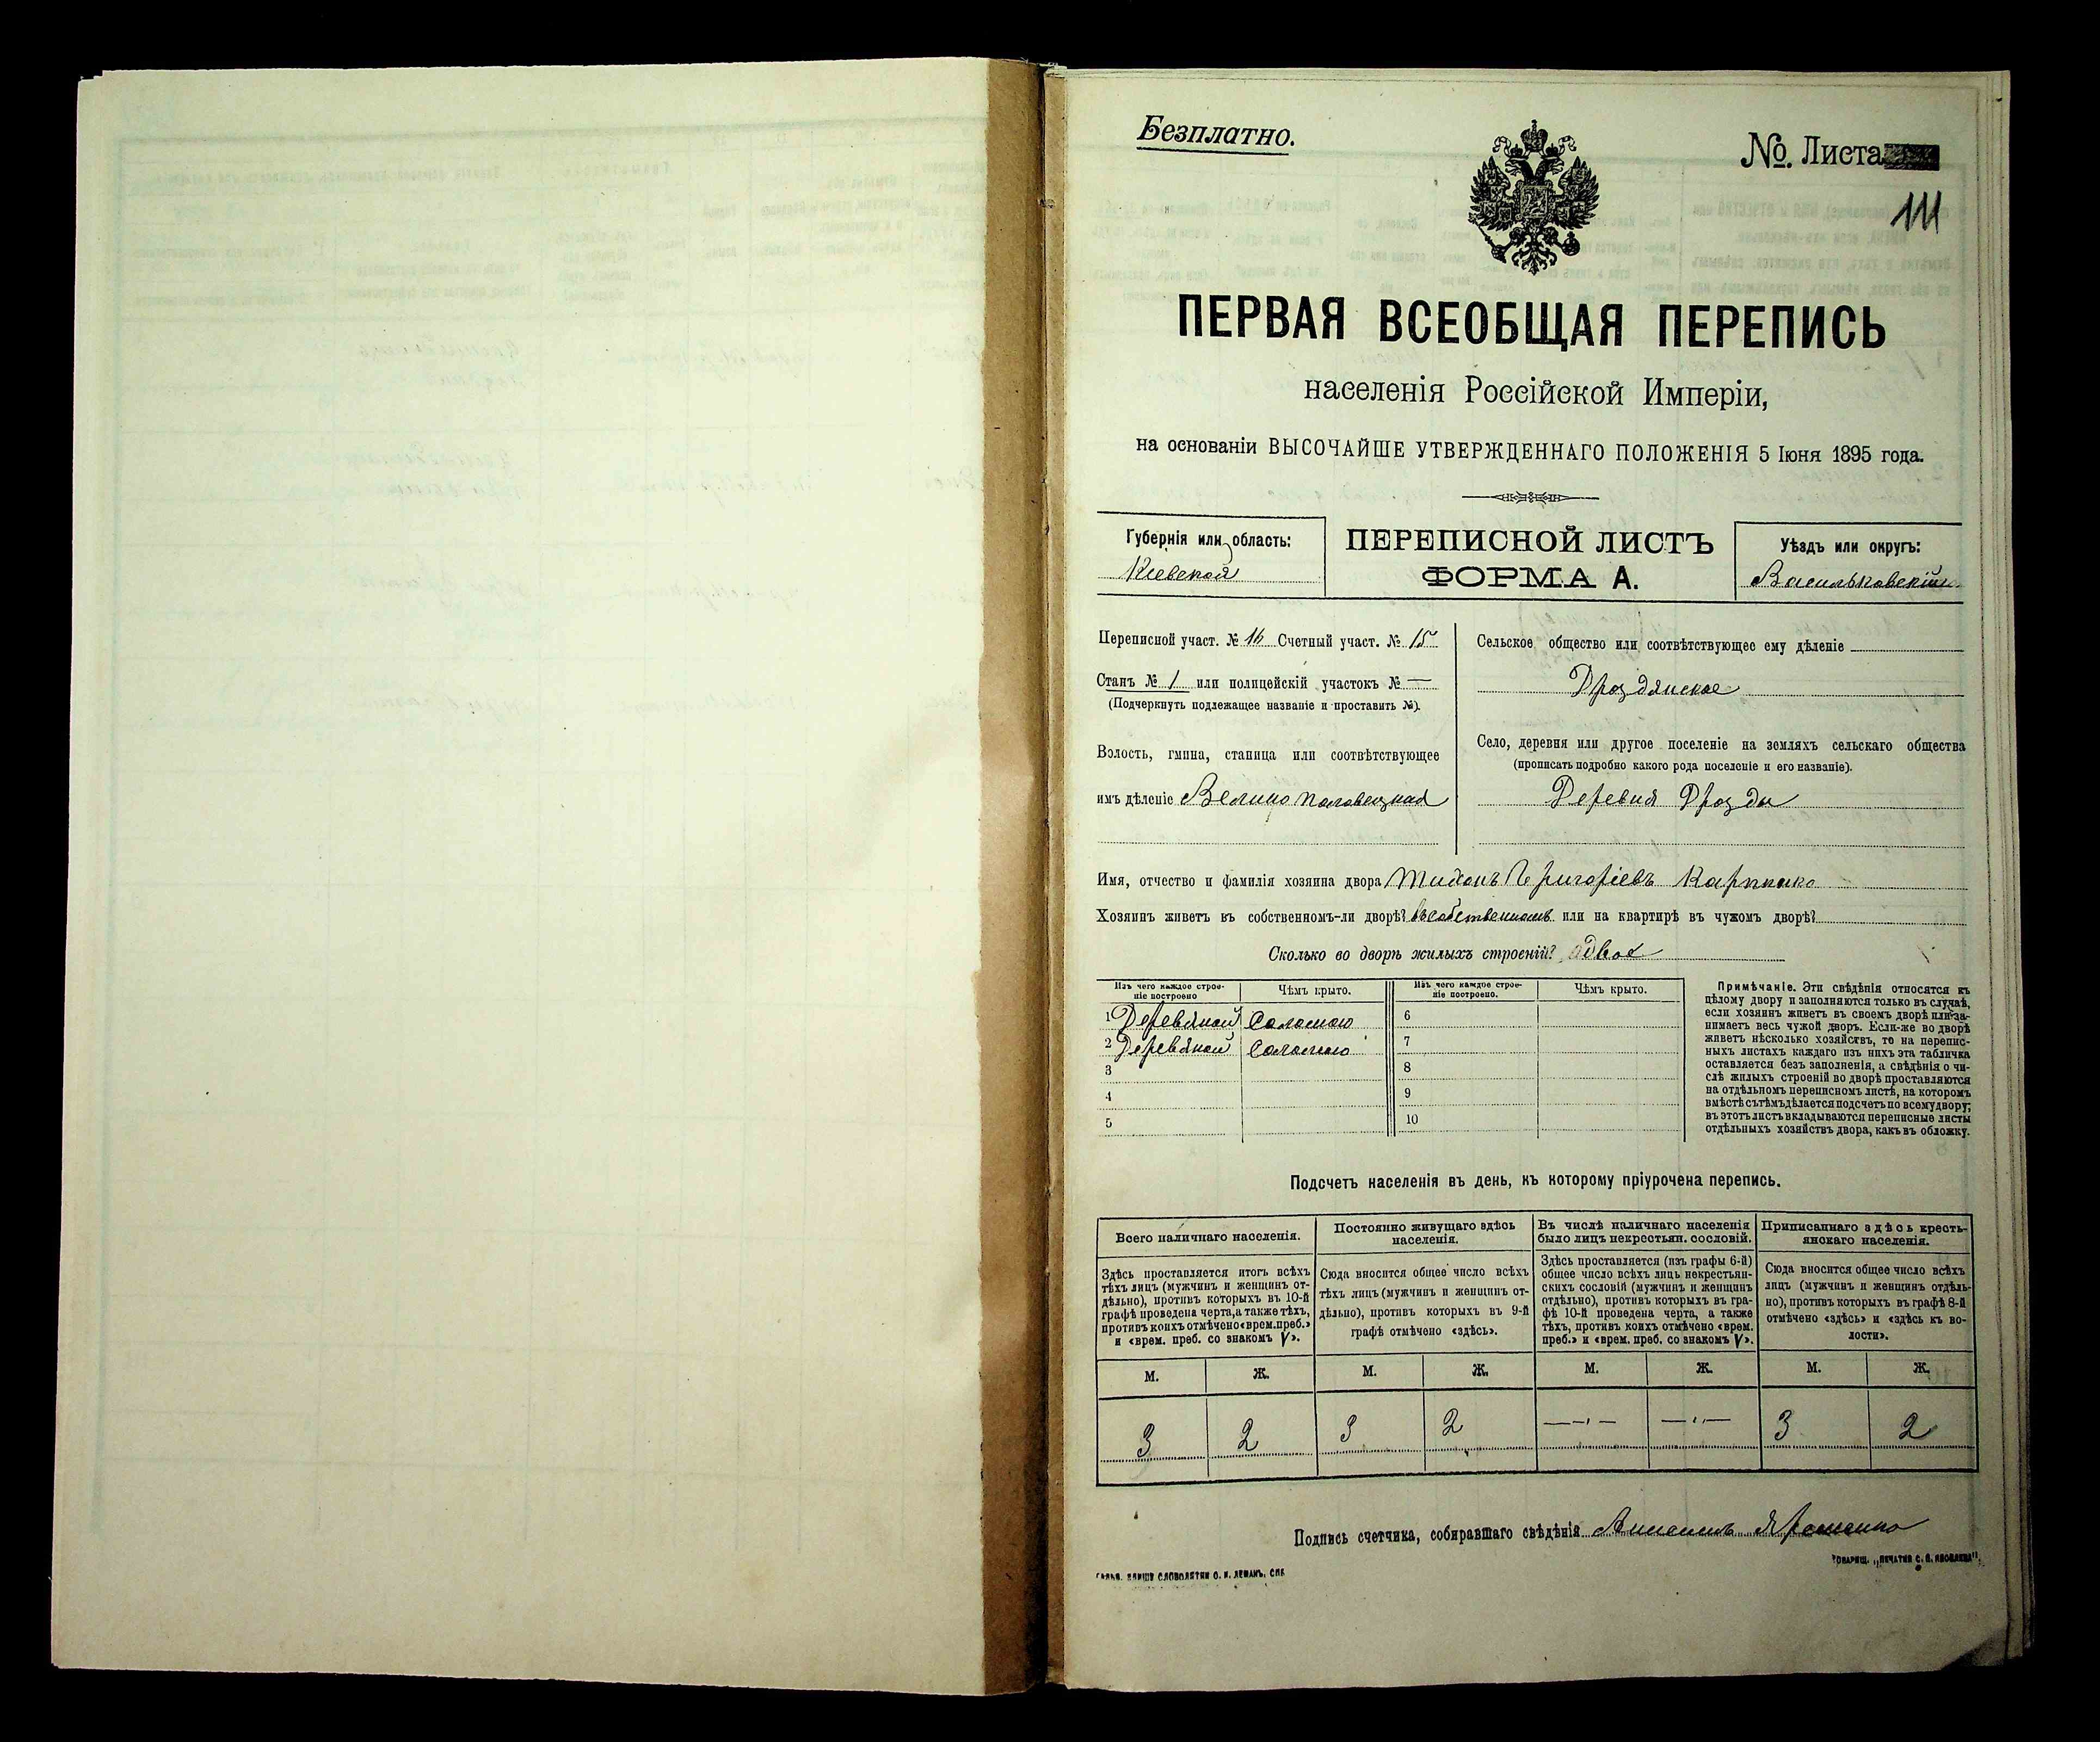 Безплатно.
№ Листа
111
ПЕРВАЯ ВСЕОБЩАЯ ПЕРЕПИСЬ
населенія Россійской Имперіи,
на основаніи ВЫСОЧАЙШЕ УТВЕРЖДЕННАГО ПОЛОЖЕНІЯ 5 Іюня 1895 года.
Губернія или область:
Кіевская
ПЕРЕПИСНОЙ ЛИСТЪ
ФОРМА А.
Уѣздъ или округъ:
Васильковскій
Переписной участ. № 16 Счетный участ. № 15
Станъ № 1 или полицейскій участокъ № —
(Подчеркнуть подлежащее названіе и проставить №).
Волость, гмина, станица или соотвѣтствующее
имъ дѣленіе Велико половецкая
Сельское общество или соотвѣтствующее ему дѣленіе
Дроздянское
Село, деревня или другое поселеніе на земляхъ сельскаго общества
(прописать подробно какого рода поселеніе и его названіе).
Деревня Дрозды
Имя, отчество и фамилія хозяина двора Тихонъ Григоріевъ Карпенко
Хозяинъ живетъ въ собственномъ-ли дворѣ? въ собственномъ или на квартирѣ въ чужомъ дворѣ?
Сколько во дворѣ жилыхъ строеній? одвое
Изъ чего каждое строе-
ніе построено
Чѣмъ крыто.
Изъ чего каждое строе-
ніе построено.
Чѣмъ крыто.
1 Деревяной Соломою
2 Деревяной Соломою
3
4
5
6
7
8
9
10
Примѣчаніе. Эти свѣдѣнія относятся къ
цѣлому двору и заполняются только въ случаѣ,
если хозяинъ живетъ въ своемъ дворѣ или за-
нимаетъ весь чужой дворъ. Если-же во дворѣ
живетъ нѣсколько хозяйствъ, то на перепис-
ныхъ листахъ каждаго изъ нихъ эта табличка
оставляется безъ заполненія, а свѣдѣнія о чи-
слѣ жилыхъ строеній во дворѣ проставляются
на отдѣльномъ переписномъ листѣ, на которомъ
вмѣстѣ съ тѣмъ дѣлается подсчетъ по всему двору;
въ этотъ листъ вкладываются переписные листы
отдѣльныхъ хозяйствъ двора, какъ въ обложку.
Подсчетъ населенія въ день, къ которому пріурочена перепись.
Всего наличнаго населенія.
Здѣсь проставляется итогъ всѣхъ
тѣхъ лицъ (мужчинъ и женщинъ от-
дѣльно), противъ которыхъ въ 10-й
графѣ проведена черта, а также тѣхъ,
противъ коихъ отмѣчено «врем. преб.»
и «врем. преб. со знакомъ V».
Постоянно живущаго здѣсь
населенія.
Сюда вносится общее число всѣхъ
тѣхъ лицъ (мужчинъ и женщинъ от-
дѣльно), противъ которыхъ въ 9-й
графѣ отмѣчено «здѣсь».
Въ числѣ наличнаго населенія
было лицъ некрестьян. сословій.
Здѣсь проставляется (изъ графы 6-й)
общее число всѣхъ лицъ некрестьян-
скихъ сословій (мужчинъ и женщинъ
отдѣльно), противъ которыхъ въ гра-
фѣ 10-й проведена черта, а также
тѣхъ, противъ коихъ отмѣчено «врем.
преб.» и «врем. преб. со знакомъ V».
Приписаннаго здѣсь кресть-
янскаго населенія.
Сюда вносится общее число всѣхъ
лицъ (мужчинъ и женщинъ отдѣль-
но), противъ которыхъ въ графѣ 8-й
отмѣчено «здѣсь» и «здѣсь къ во-
лости».
М. Ж. М. Ж. М. Ж. М. Ж.
3 2 3 2 —„— —„— 3 2
Подпись счетчика, собиравшаго свѣдѣнія